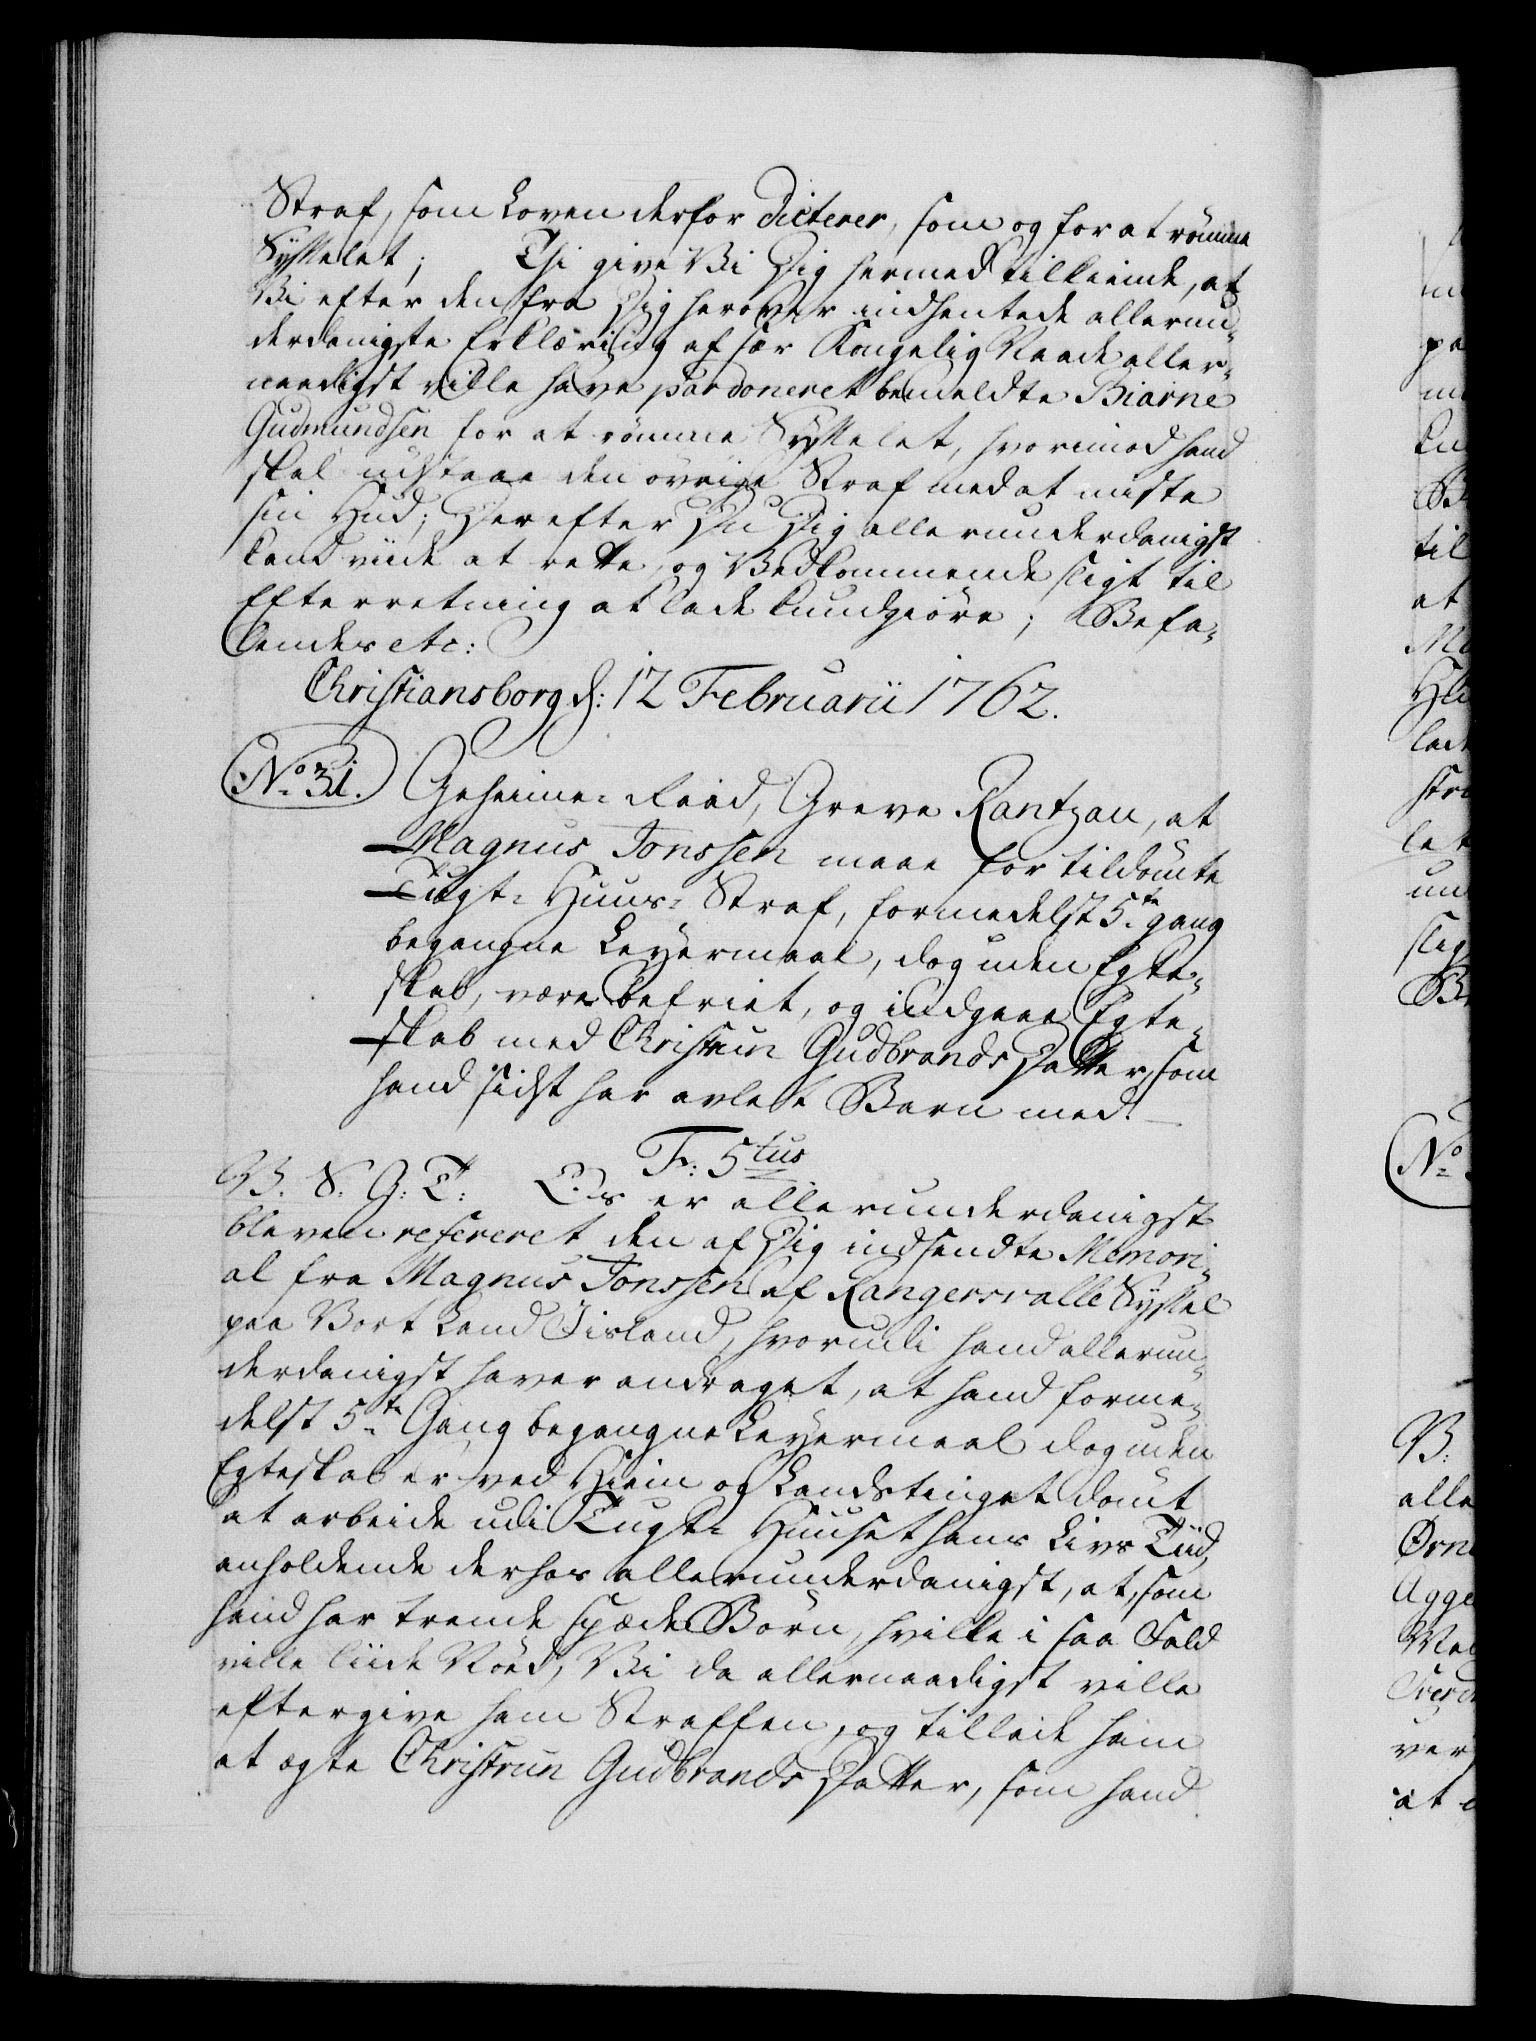 Straf, som Loven derfor dicterer, som og for at rømme
Sysselet; Thi give Vi Dig hermed tilkiende, at
Vi efter den fra Dig herover indhentede allerun-
derdanigste Erklæring af sær Kongelig Naade aller-
naadigst ville have pardoneret bemeldte Biarne
Gudmundsen for at rømme Sysselet, hvorimod hand
skal udstaae den øvrige Straf med at miste
sin Hud; Derefter Du Dig allerunderdanigst
kand viide at rette, og Vedkommende sligt til
Efterretning at lade kundgiøre; Befa-
lendes etc:
Christiansborg d: 12 Februarii 1762.
No 31. Geheime-Raad, Greve Rantzau, at
Magnus Jonssen maae for tildømte
Tugt-Huus-Straf, formedelst 5te gang
begangne Leyermaal, dog uden Egte-
skab, være befriet, og indgaae Egte-
skab med Christrun Gudbrands Datter, som
hand sidst har avlet Barn med.
F: 5tus
V. S. G. T: Os er allerunderdanigst
bleven refereret den af Dig indsendte Memori-
al fra Magnus Jonssen af Rangervalle Syssel
paa Vort Land Iisland, hvorudi hand allerun-
derdanigst haver andraget, at hand forme-
delst 5te Gang begangne Leyermaal dog uden
Egteskab er ved Hiem og Landstinget dømt
at arbeide udi Tugt-Huuset hans Livs Tiid,
anholdende derhos allerunderdanigst, at, som
hand har trende spæde Børn, hvilke i saa Fald
ville liide Nød, Vi da allernaadigst ville
eftergive ham Straffen, og tillade ham
at ægte Christrun Gudbrands Datter, som hand